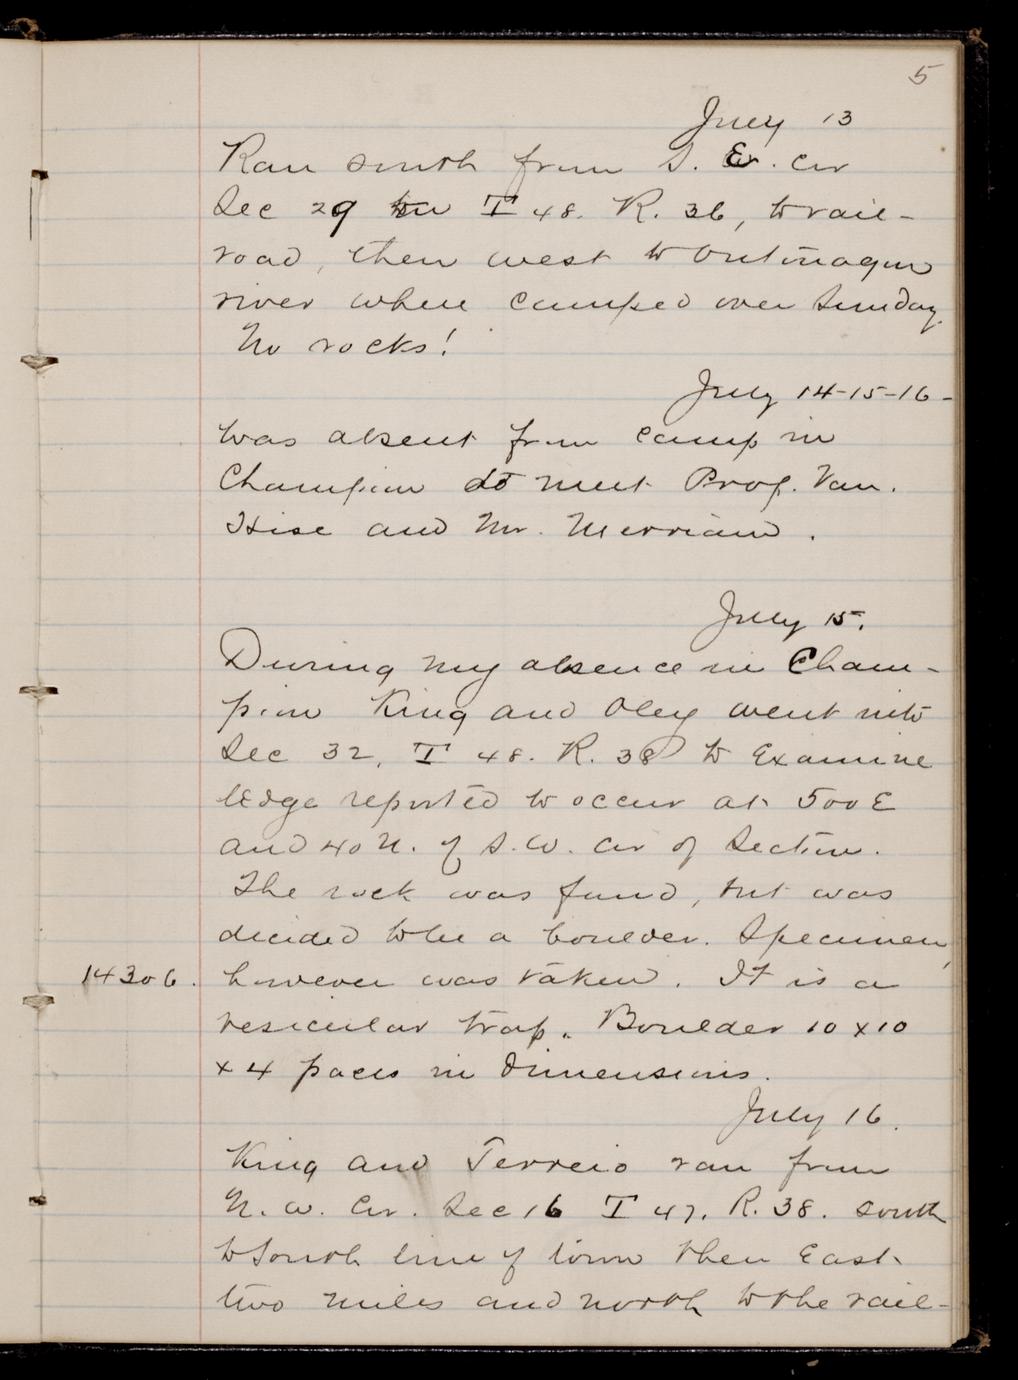 5
July 13
Ran south from S. E. Cor
Sec 29 T 48. R. 36, to rail-
road, then west to Ontonagon
river where camped over Sunday.
No rocks!
July 14-15-16-
Was absent from camp in
Champion to meet Prof. Van.
Hise and Mr. Merriam.
July 15.
During my absence in Cham-
pion King and Oley went into
Sec 32, T 48. R. 38 to Examine
ledge reported to occur at 500 E
and 40 N. of S. W. Cor of Section.
The rock was found, but was
decided to be a boulder. Specimen,
14306. however was taken. It is a
vesicular trap. Boulder 10 x 10
x 4 paces in Dimensions.
July 16.
King and Terreio ran from
N. W. Cor. Sec 16 T 47. R. 38. south
to South line of town then East
two miles and north to the rail-